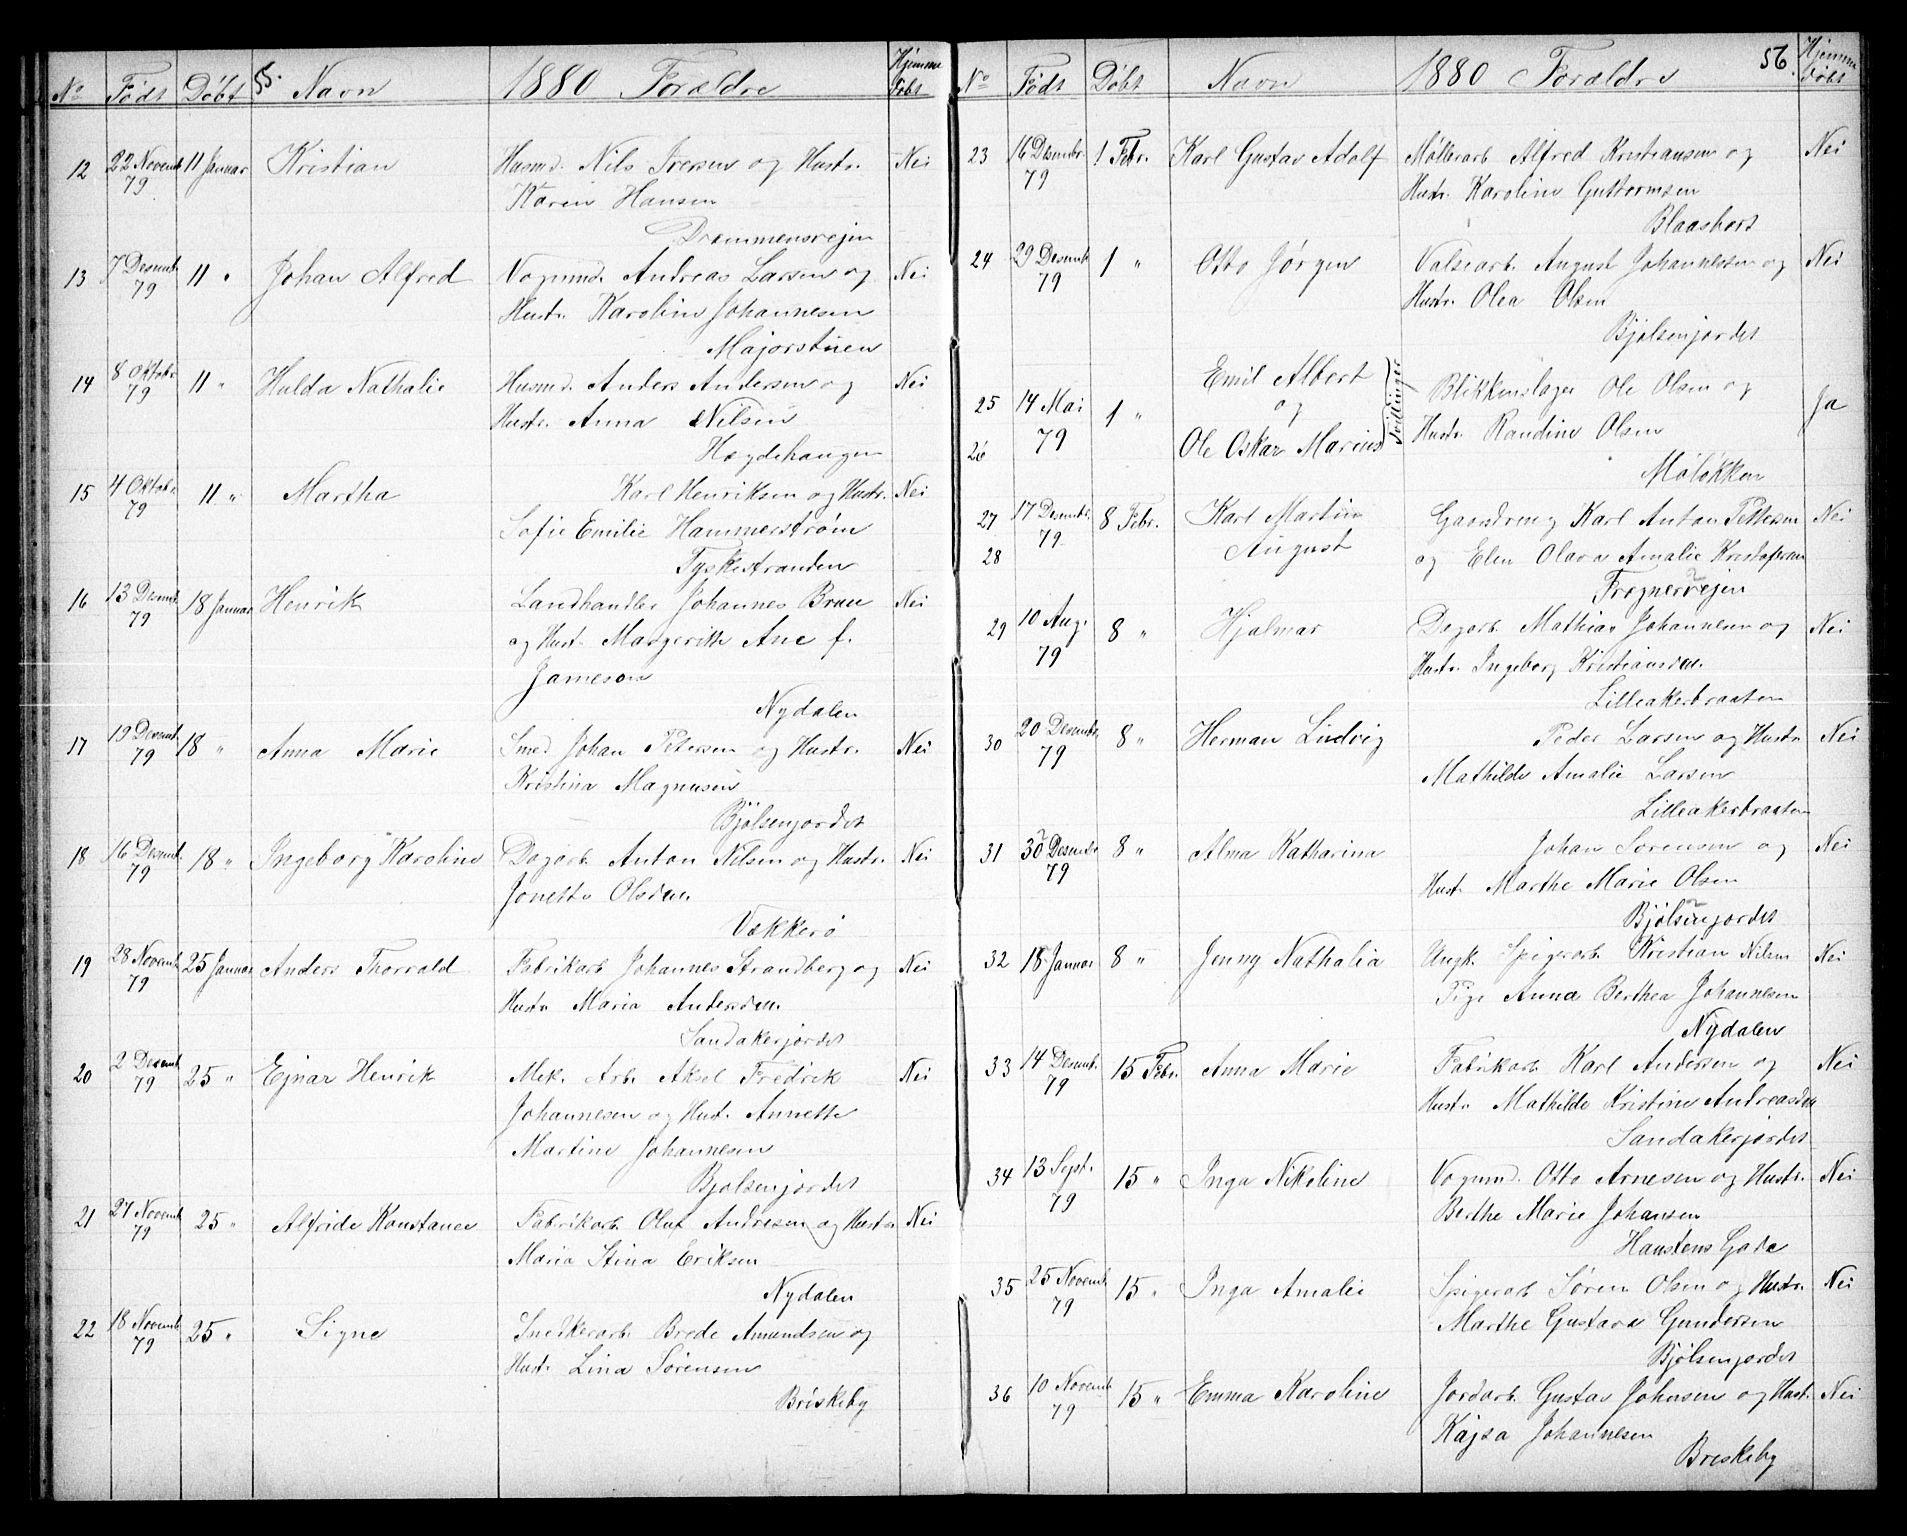 55.
No Födt Döbt Navn 1880 Foræeldre Hjemme Döbt
12 22 Novemb. 79 11 Januar Kristian Husmd. Nils Iversen og Hustr. Nei
Karen Hansen
Drammensvejen
13 7 Desemb. 79 11 " Johan Alfred Vognmd. Andreas Larsen og Nei
Hustr. Karoline Johannesen
Majorstuen
14 8 Oktobr. 79 11 " Hulda Nathalie Husmd. Anders Andersen og Nei
Hustr. Anna Nilsen
Hægdehaugen
15 4 Oktobr. 79 11 " Martha Karl Henriksen og Hustr. Nei
Sofie Emilie Hammerstrøm
Tyskestranden
16 13 Desemb. 79 18 Januar Henrik Landhandler Johannes Brun Nei
og Hust. Margerith Ane f.
Jameson
Nydalen
17 19 Desemb. 79 18 " Anna Marie Smed Johan Petersen og Hustr. Nei
Kristina Magnusen
Bjølsenjordet
18 16 Desemb. 79 18 " Ingeborg Karoline Dagarb. Anton Nilsen og Hustr. Nei
Jonette Olsdtr.
Vækkerø
19 28 Novemb. 79 25 Januar Anders Thorvald Fabrikarb. Johannes Strandberg og Nei
Hustr. Maria Andersdtr.
Sandakerjordet
20 2 Desemb. 79 25 " Ejnar Henrik Mek. Arb. Aksel Fredrik Nei
Johannesen og Hust. Annette
Martine Johannesen
Bjølsenjordet
21 27 Novemb. 79 25 " Alfride Konstance Fabrikarb. Oluf Andresen og Hustr. Nei
Maria Stina Eriksen
Nydalen
22 18 Novemb. 79 25 " Signe Snedkerarb. Brede Amundsen og
Hustr. Lina Sørensen
Briskeby
56
No Födt Döbt Navn 1880 Foræeldre Hjemme Döbt
23 16 Desembr. 79 1 Febr. Karl Gustav Adolf Møllerarb. Alfred Kristiansen og Nei
Hustr. Karoline Guttormsen
Blaasbort
24 29 Desemb. 79 1 " Otto Jørgen Valsearb. August Johannessen og Nei
Hustr. Olea Olsen
Bjølsenjordet
25 14 Mai 79 1 " Emil Albert Blikkenslager Ole Olsen og Ja
og Tvillinger Hustr. Randine Olsen
26 Ole Oskar Marius
Møløkken
27 17 Desembr. 79 8 Febr. Karl Martin Gaardsdreng Karl Anton Pettersen Nei
28 August og Elen Olava Amalie Kristofersen
Frognervejen
29 10 Aug. 79 8 " Hjalmar Dagarb. Mathias Johannesen og Nei
Hustr. Ingeborg Kristiansdtr.
Lilleakerbraaten
30 20 Desembr. 79 8 " Herman Ludvig Peder Larsen og Hustr. Nei
Mathilde Amalie Larsen
Lilleakerbraaten
31 30 Desembr. 79 8 " Alma Katharina Johan Sørensen og Nei
Hust. Marthe Marie Olsen
Bjølsenjordet
32 18 Januar 8 " Jenny Nathalia Ungk. Spigerarb. Kristian Nilsen Nei
Pige Anna Berthea Johannesen
Nydalen
33 14 Desemb. 79 15 Febr. Anna Marie Fabrikarb. Karl Andersen og Nei
Hustr. Mathilde Kristine Andreasdtr
Sandakerjordet
34 13 Sept. 79 15 " Inga Nikoline Vognmd. Otto Arnesen og Hustr. Nei
Berthe Marie Johansen
Haustens Gade
35 25 Novemb. 79 15 " Inga Amalie Spigerarb. Sören Olsen og Hustr. Nei
Marthe Gustava Gundersen
Bjølsenjordet
36 10 Novemb. 79 15 " Emma Karoline Jordarb. Gustav Johnsen og Hust. Nei
Kajsa Johannesen
Breskeby